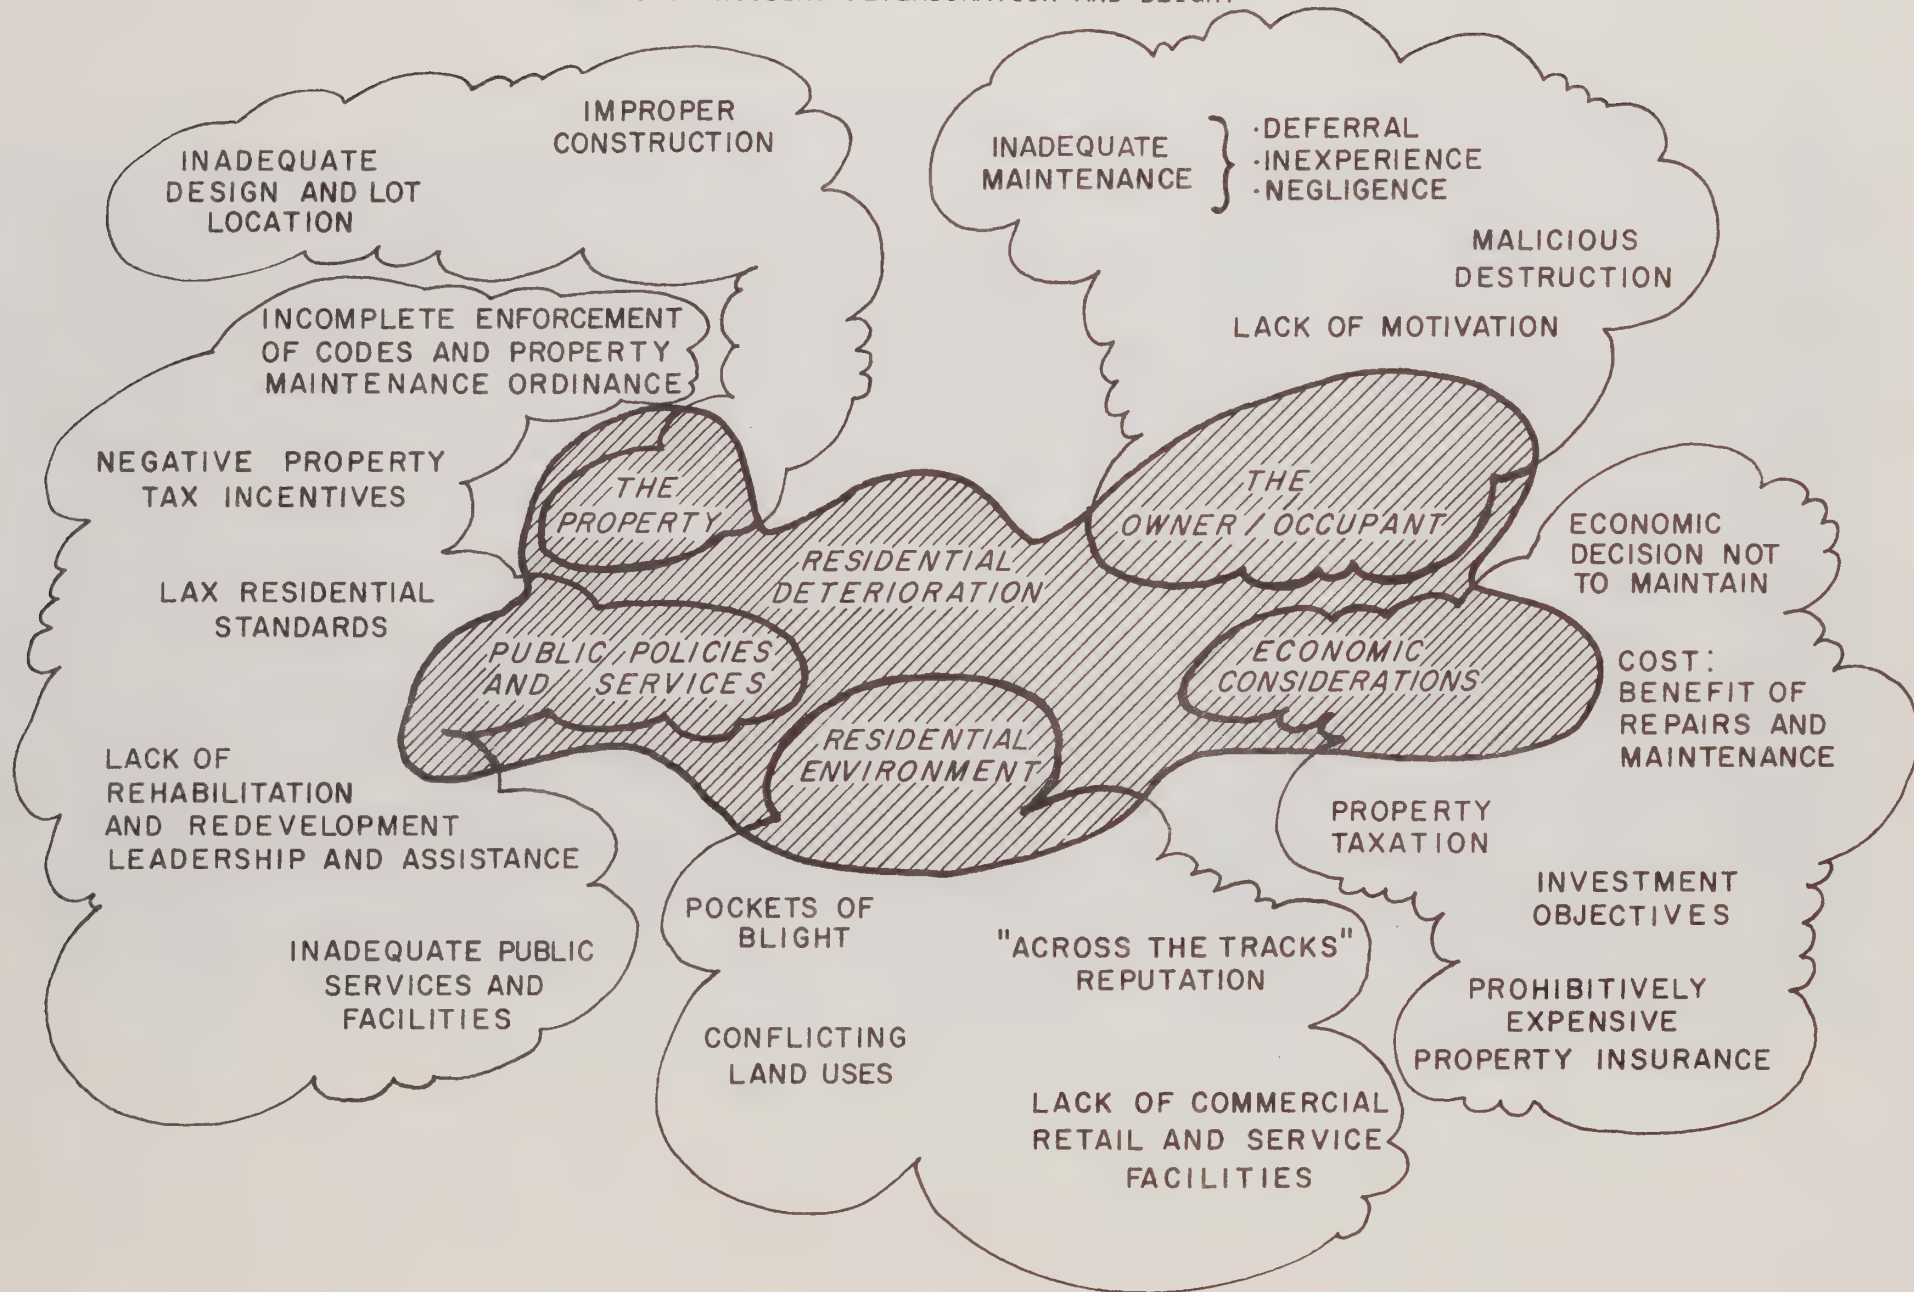 DETERIORATION AND BLIGHT
IMPROPER
CONSTRUCTION
INADEQUATE
DESIGN AND LOT
LOCATION
INADEQUATE
MAINTENANCE
·DEFERRAL
·INEXPERIENCE
·NEGLIGENCE
MALICIOUS
DESTRUCTION
LACK OF MOTIVATION
INCOMPLETE ENFORCEMENT
OF CODES AND PROPERTY
MAINTENANCE ORDINANCE
NEGATIVE PROPERTY
TAX INCENTIVES
LAX RESIDENTIAL
STANDARDS
LACK OF
REHABILITATION
AND REDEVELOPMENT
LEADERSHIP AND ASSISTANCE
INADEQUATE PUBLIC
SERVICES AND
FACILITIES
THE
PROPERTY
RESIDENTIAL
DETERIORATION
THE
OWNER / OCCUPANT
PUBLIC POLICIES
AND SERVICES
ECONOMIC
CONSIDERATIONS
RESIDENTIAL
ENVIRONMENT
ECONOMIC
DECISION NOT
TO MAINTAIN
COST:
BENEFIT OF
REPAIRS AND
MAINTENANCE
PROPERTY
TAXATION
INVESTMENT
OBJECTIVES
PROHIBITIVELY
EXPENSIVE
PROPERTY INSURANCE
POCKETS OF
BLIGHT
"ACROSS THE TRACKS"
REPUTATION
CONFLICTING
LAND USES
LACK OF COMMERCIAL
RETAIL AND SERVICE
FACILITIES